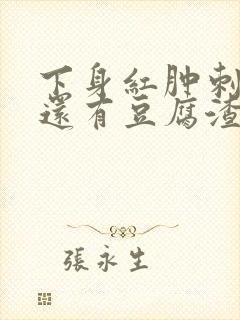 下身紅肿刺
還有豆腐渣
張永生